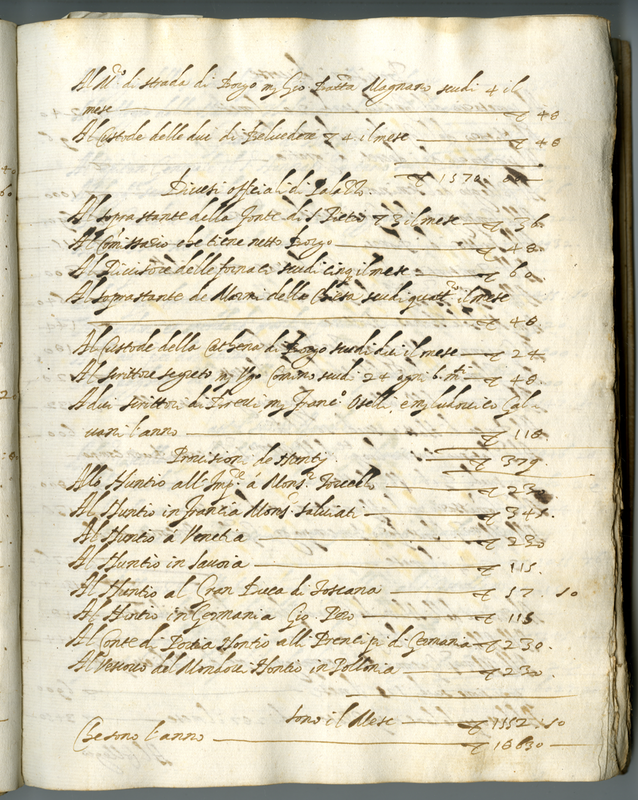 Al M.ro di strada di Borgo m. Gio Batta Magnaro scudi 4 il
mese ▽ 48
Al Custode delle dui di Belvedere ▽ 4 il mese ▽ 48
▽ 1570
Diversi officiali di Palazzo.
Al soprastante della fonte di S. Pietro ▽ 3 il mese ▽ 36
Al Com̃issario che tiene netto Borgo ▽ 48
Al Provisore delle fornaci scudi cinq il mese ▽ 60
Al soprastante de Marmi della Chiesa scudi quattro il mese
▽ 48
Al Custode della Cathena di Borgo scudi dui il mese ▽ 24
Al scrittore segreto m. Ugo Comino scudi 24 ogni ▽ 48.
A dui scrittori di Brevi m. Franc.o Oselli, e m. Ludovico Cal-
vani l'anno ▽ 118
Provisioni de Nontij ▽ 379.
Allo Nuntio all'Imp.re a Mons.r ▽ 230
Al Nuntio in Francia Mons.r Salviati ▽ 345.
Al Nuntio a Venetia ▽ 230
Al Nuntio in Savoia ▽ 115.
Al Nuntio al Gran Duca di Toscana ▽ 57. 50
Al Nontio in Germania Gio. ▽ 115
Al Conte di Portia Nontio alli Prencipi di Germania ▽ 230.
Al Vescovo del Mondovi Nontio in Pollonia ▽ 230.
sono il Mese ▽ 1552.50
Che sono l'anno ▽ 18630